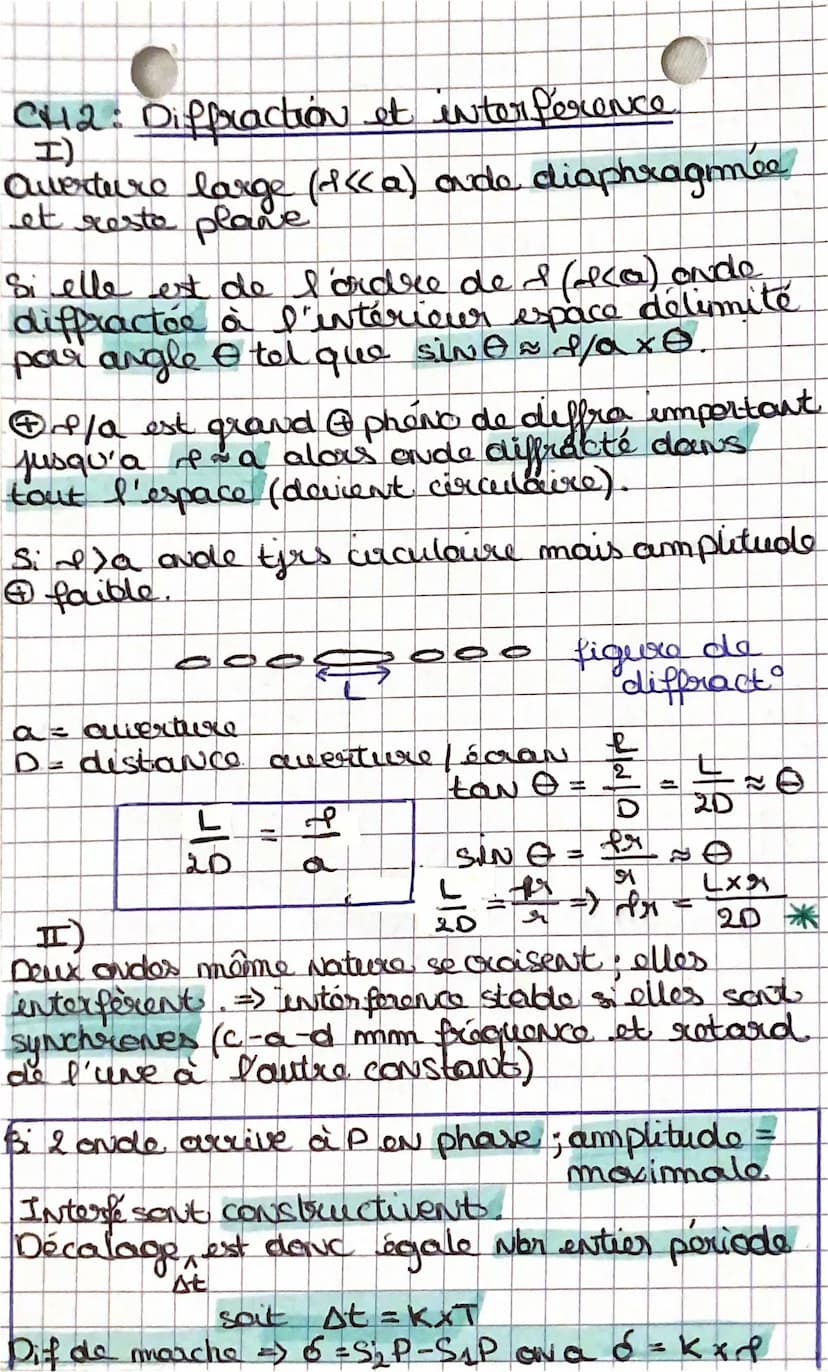 CH2: Diffraction et interférence
I)
Ouverture large (λ<<a) onde diaphragmée
et reste plane
Si elle est de l'ordre de λ (λ<a) onde
diffractée à l'intérieur espace délimité
par angle θ tel que sin θ ≈ λ/a x θ.
⊕ λ/a est grand ⊕ phéno de diffra important
jusqu'a λ≈a alors onde diffracté dans
tout l'espace (devient circulaire).
Si λ>a onde tjrs circulaire mais amplitude
⊕ faible.
figure de
diffract°
L
a = ouverture
D = distance ouverture / écran
tan θ = (L/2)/D = L/2D ≈ θ
L/2D = λ/a
sin θ = λr/r ≈ θ
L/2D = λr/r => λr = L x r/2D *
II)
Deux ondes même nature se croisent ; elles
interfèrent. => interférence stable si elles sont
synchrones (c-a-d mm fréquence et retard
de l'une à l'autre constant)
Si 2 onde arrive à P en phase ; amplitude =
maximale
Interfé sont constructivent.
Décalage est donc égale nbr entier période
Δt
soit Δt = K x T
Dif de marche => δ = S2P - S1P on a δ = K x λ